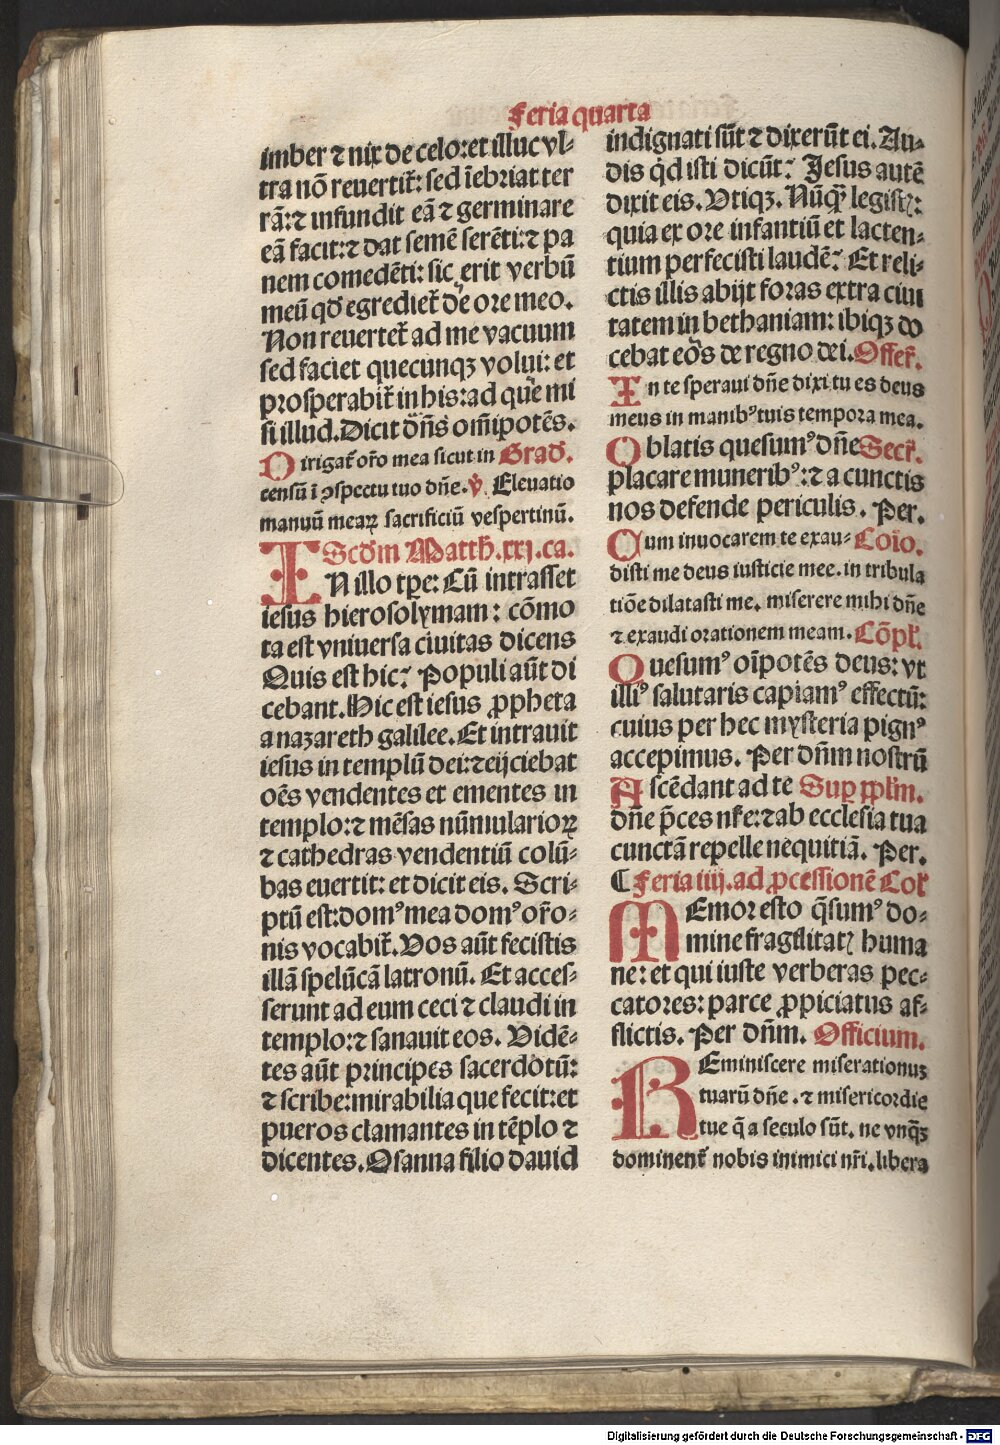 Feria quarta
imber ⁊ nix de celo:et illuc vl⸗
tra nō reuertit᷑: sed īebriat ter
rā:⁊ infundit eā ⁊ germinare
eā facit:⁊ dat semē serēti:⁊ pa
nem comedēti: sic erit verbū
meū qđ egrediet᷑ de ore meo.
Non reuertet᷑ ad me vacuum
sed faciet quecunqꝫ volui: et
prosperabit᷑ in his:ad que mi
si illud. Dicit dñs om̄ipotēs.
Dirigat᷑ or̄o mea sicut in Grad̄.
censū ī ꝯspectu tuo dn̄e. ℣ Eleuatio
manuū mearꝝ sacrificiū vespertinū.
Scd̄m Matth̄.xxj.ca.
IN illo tp̄e: Cū intrasset
iesus hierosolymam: cōmo
ta est vniuersa ciuitas dicens
Quis est hic? Populi aūt di
cebant. Hic est iesus ꝓpheta
a nazareth galilee. Et intrauit
iesus in templū dei:⁊ eijciebat
oēs vendentes et ementes in
templo:⁊ mēsas nūmulariorꝝ
⁊ cathedras vendentiū colū⸗
bas euertit: et dicit eis. Scri⸗
ptū est:domꝰ mea domꝰ or̄o⸗
nis vocabit᷑. Vos aūt fecistis
illā spelūcā latronū. Et acces⸗
serunt ad eum ceci ⁊ claudi in
templo:⁊ sanauit eos. Vidē⸗
tes aūt principes sacerdotū:
⁊ scribe:mirabilia que fecit:et
pueros clamantes in tēplo ⁊
dicentes. Osanna filio dauid
indignati sūt ⁊ dixerūt ei. Au⸗
dis qd̄ isti dicūt? Jesus autē
dixit eis. Vtiqꝫ. Nūqꝫ̄ legistꝭ:
quia ex ore infantiū et lacten⸗
tium perfecisti laudē? Et reli⸗
ctis illis abijt foras extra ciui
tatem in bethaniam: ibiqꝫ do
cebat eos de regno dei. Offer̄.
In te speraui dn̄e dixi tu es deus
meus in manibꝰ tuis tempora mea.
Oblatis quesumꝰ dn̄e Secr̄.
placare muneribꝰ:⁊ a cunctis
nos defende periculis. Per.
Cum inuocarem te exau⸗ Cōio.
disti me deus iusticie mee. in tribula
tiōe dilatasti me. miserere mihi dn̄e
⁊ exaudi orationem meam. Cōpl̄.
Quesumꝰ oīpotēs deus: vt
illiꝰ salutaris capiamꝰ effectū:
cuius per hec mysteria pignꝰ
accepimus. Per dn̄m nostrū
Ascēdant ad te Sup̱ ppl̄m.
dn̄e p̄ces nr̄e:⁊ ab ecclesia tua
cunctā repelle nequitiā. Per.
¶ Feria iiij. ad ꝓcessionē Col̄
MEmor esto q̄sumꝰ do⸗
mine fragilitatꝭ huma
ne: et qui iuste verberas pec⸗
catores: parce ꝓpiciatus af⸗
flictis. Per dn̄m. Officium.
REminiscere miserationuꝫ
tuarū dn̄e .⁊ misericordie
tue q̄ a seculo sūt. ne vnqꝫ̄
dominent᷑ nobis inimici nr̄i. libera
Digitalisierung gefördert durch die Deutsche Forschungsgemeinschaft - DFG